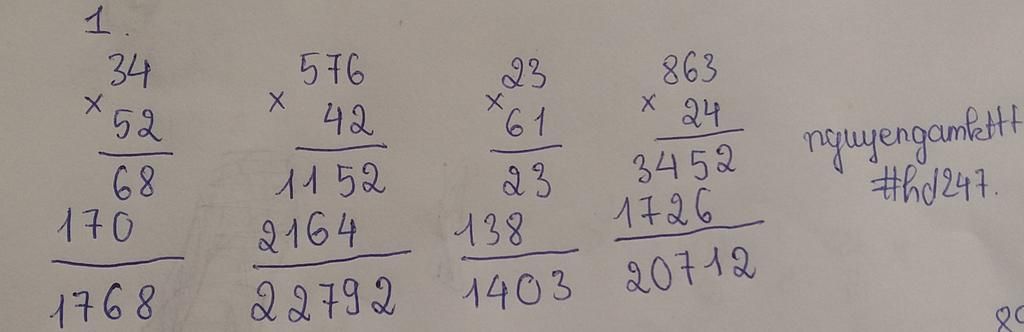 1.
34 576 23 863
× 52 × 42 × 61 × 24
68 1152 23 3452
170 2164 138 1726
1768 22792 1403 20712
#hd247.